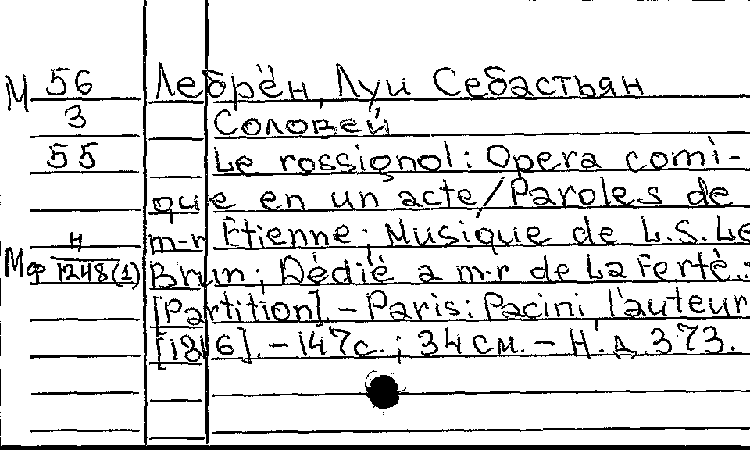 М 56 Лебрён, Луи Себастьян
3 Соловей
55 Le rossignol: Opera comi-
que en un acte/Paroles de
m-r Etienne; Musique de L.S.Le
Мф Н 1248(1) Brun; Dédié a m-r de La Ferté..:
[Partition]. – Paris: Pacini, l'auteur
[1816]. – 147с.; 34см. – Н.д. 373.